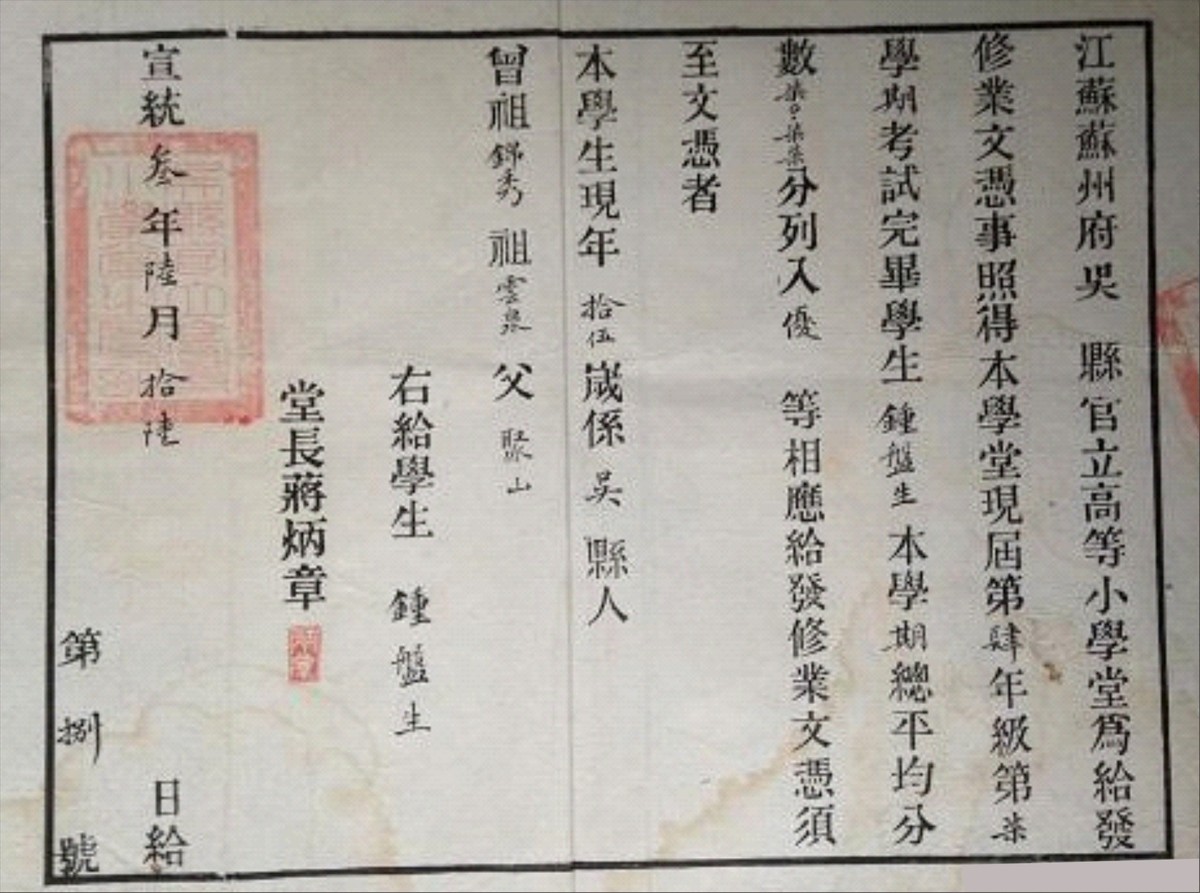 江蘇蘇州府吳縣官立高等小學堂爲給發
修業文憑事照得本學堂現屆第肆年級第柒
學期考試完畢學生鍾盤生本學期總平均分
數柒柒柒分列入優等相應給發修業文憑須
至文憑者
本學生現年拾伍歲係吳縣人
曾祖錦秀祖雲泉父聚山
右給學生鍾盤生
堂長蔣炳章
宣統叁年陸月拾陸日給
第捌號